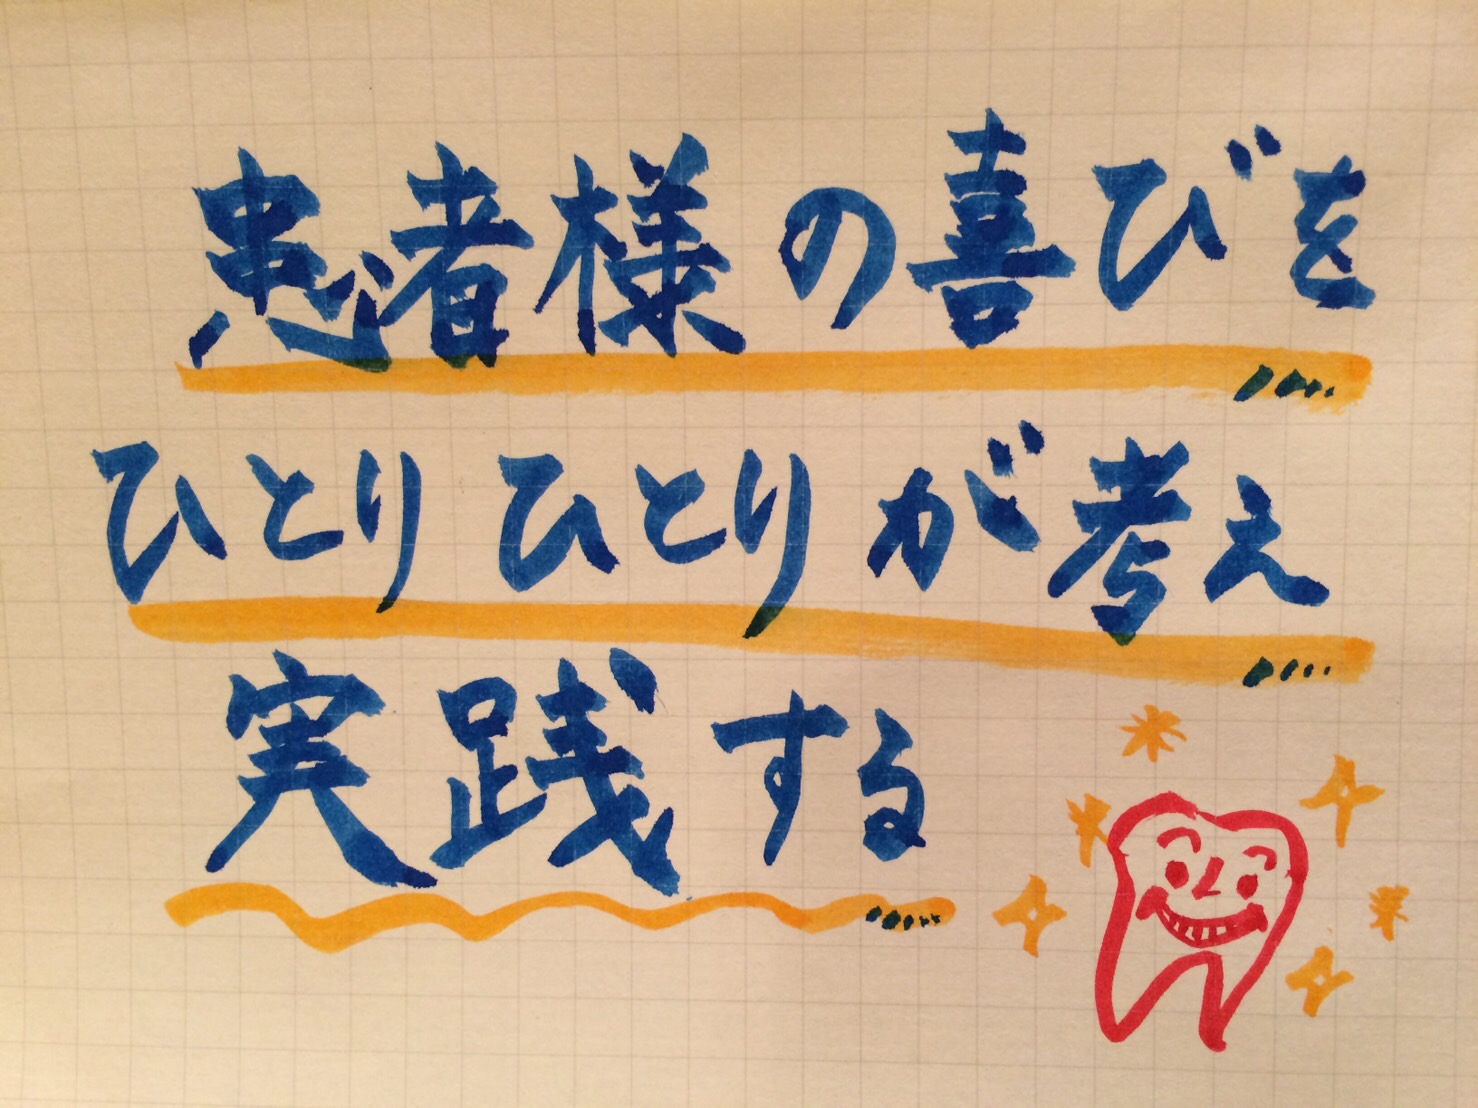 患者様の喜びを
ひとりひとりが考え
実践する